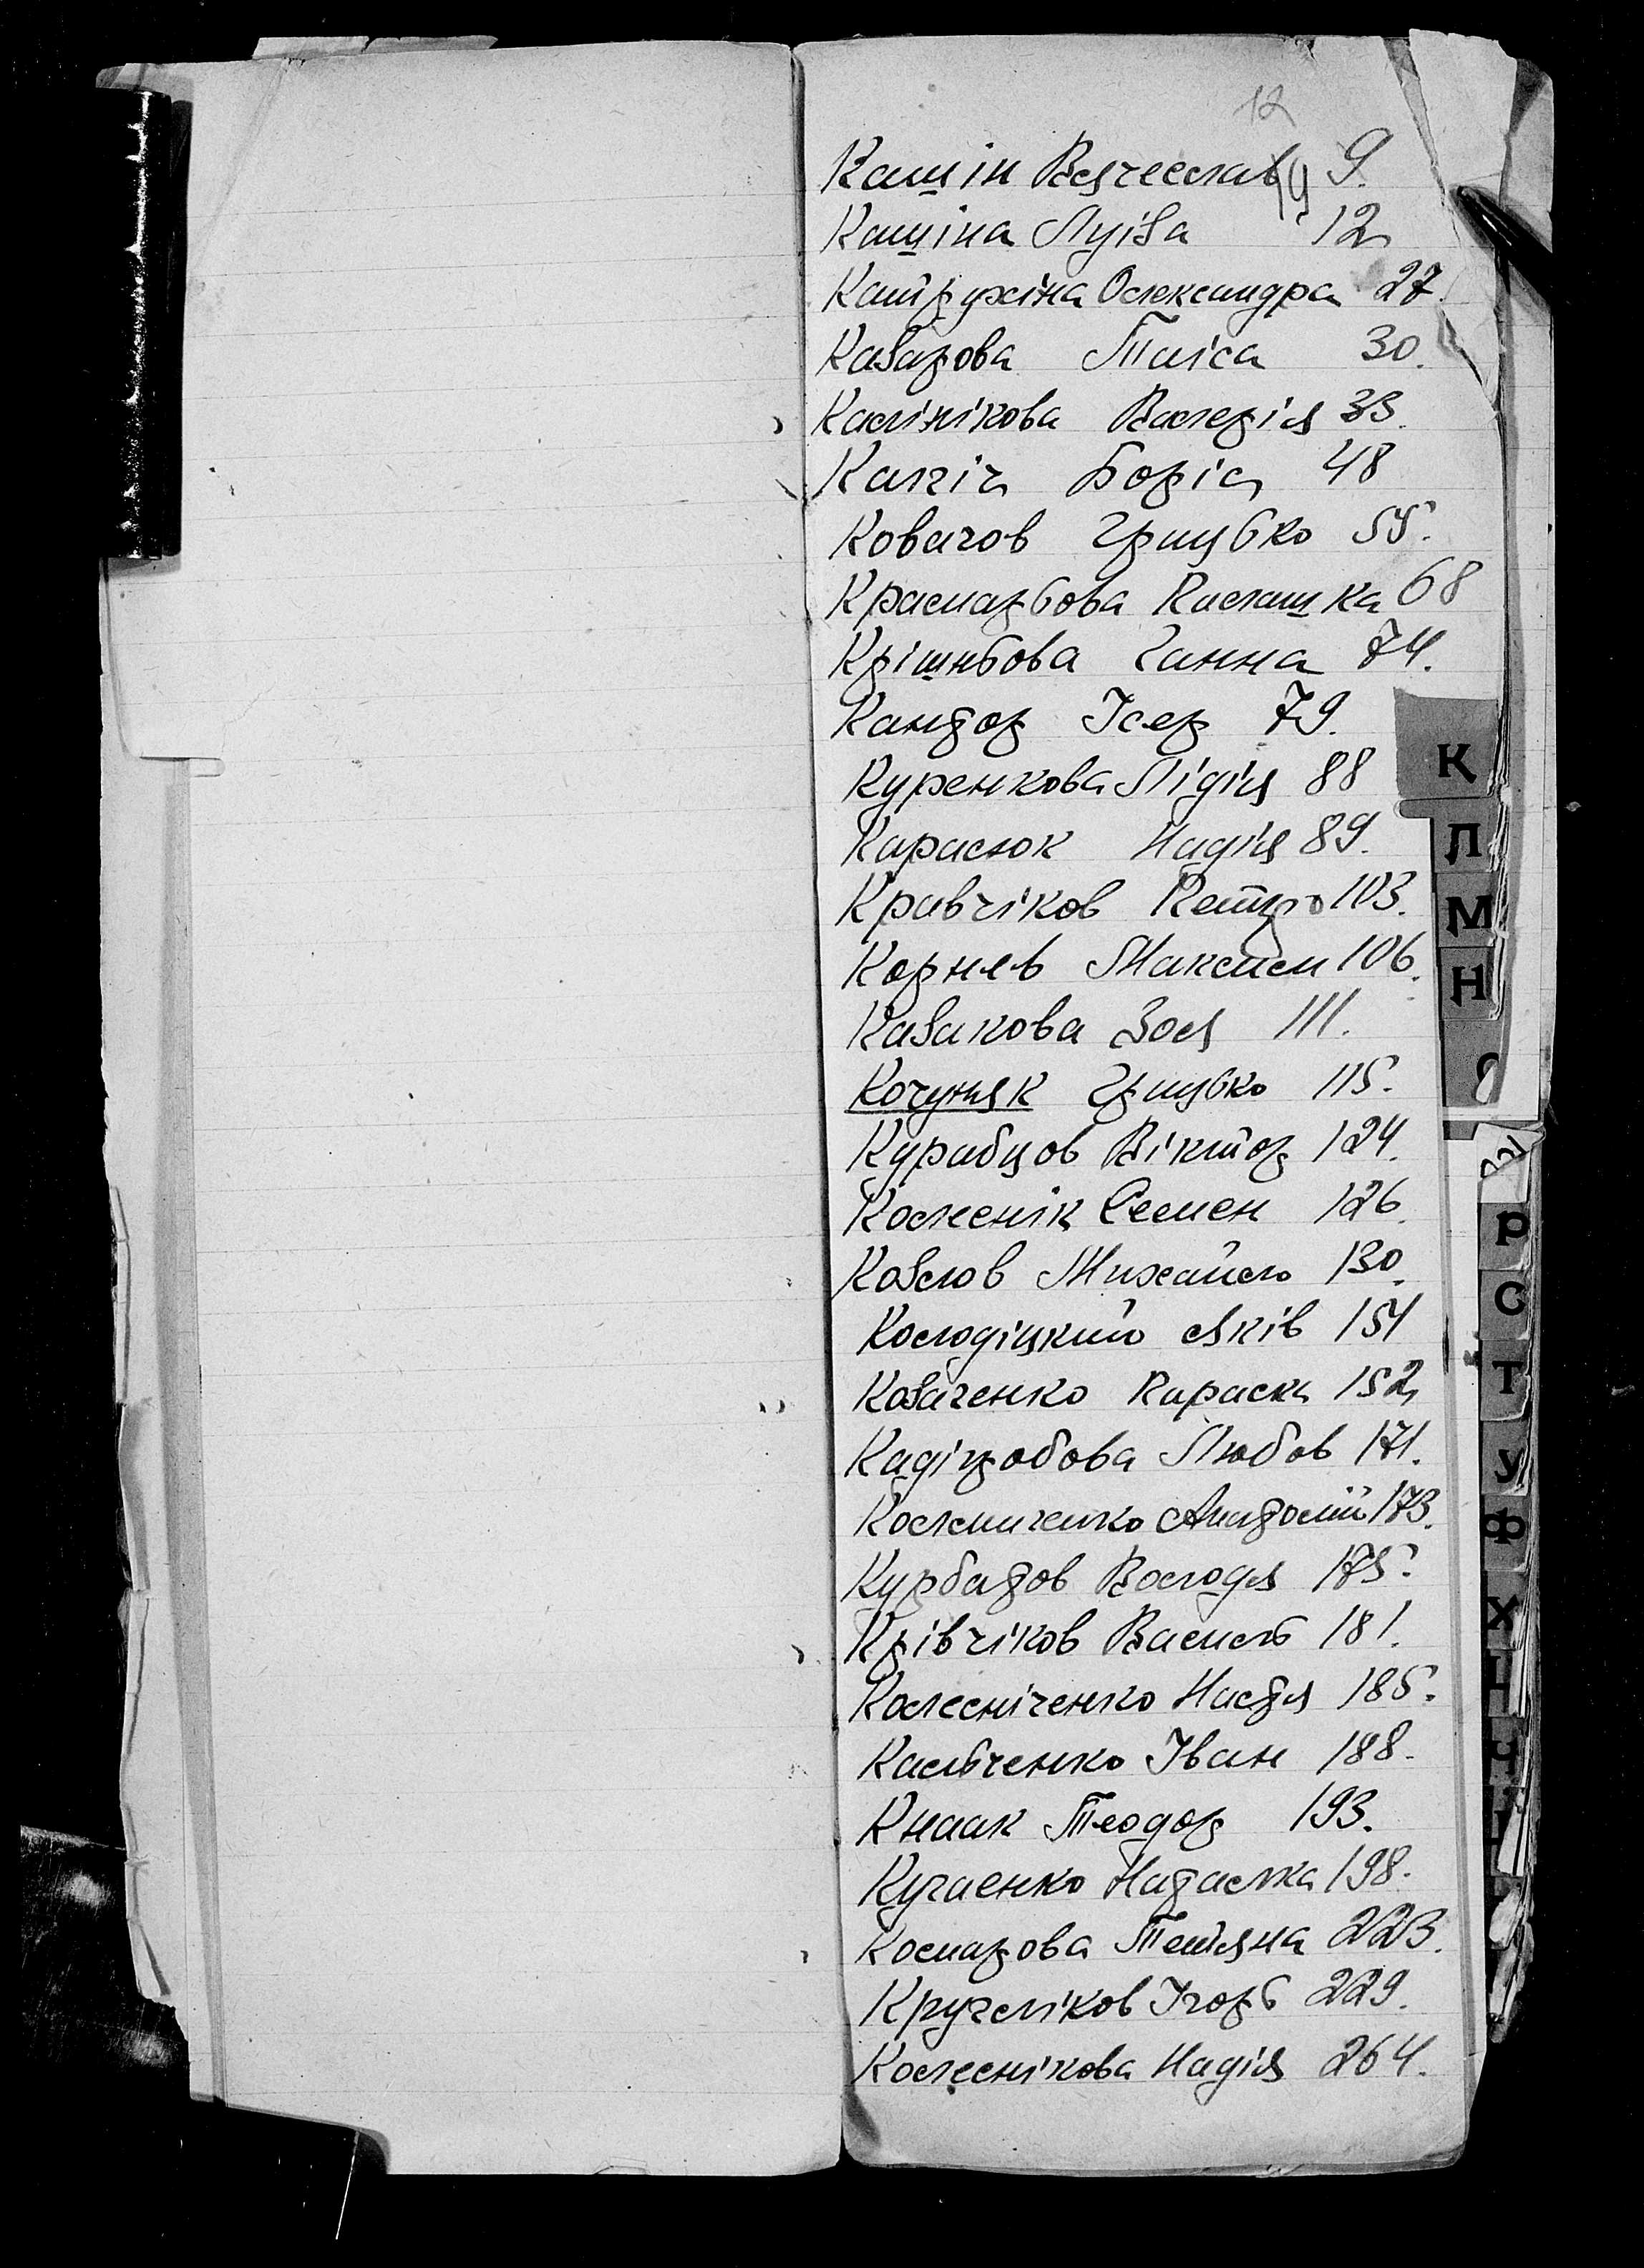 12
Кашін Вячеслав 9.
Кашіна Луіза 12
Катружіна Олександра 27.
Казарова Таіса 30.
Калінікова Валерія 33.
Капіч Боріс 48
Ковачов Грицько 55.
Краснарьова Палашка 68
Крішньова Ганна 74.
Кантор Ісер 79.
Куренкова Лідія 88
Карасюк Надія 89.
Кравчіков Петро 103.
Корнєв Максим 106.
Казакова Зоя 111.
Кочуняк Грицько 115.
Курабцов Віктор 124.
Колеснік Семен 126.
Козлов Михайло 130.
Колодіцкий Яків 151
Козаченко Параска 152
Кадігробова Любов 171.
Колениченко Анатолій 173.
Курбатов Володя 175.
Крівчіков Василь 181.
Колесніченко Настя 185.
Кальченко Іван 188.
Кнаак Теодор 193.
Кучаенко Наталка 198.
Комарова Тетяна 223.
Кругліков Ігорь 229.
Колеснікова Надія 264.
К
Л
М
Н
Р
С
Т
У
Ф
Х